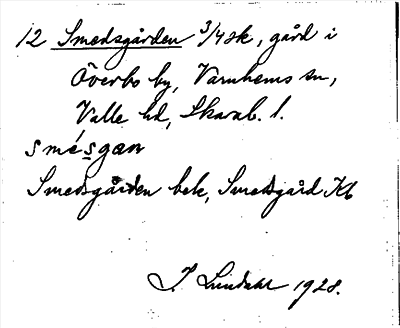 12 Smedsgården 3/48k, gård i
Överbo by, Varnhems sn,
Valle hd, Skarab. l.
smésgan
Smedsgården bek, Smedsgård Kb
J Lundahl 1928.